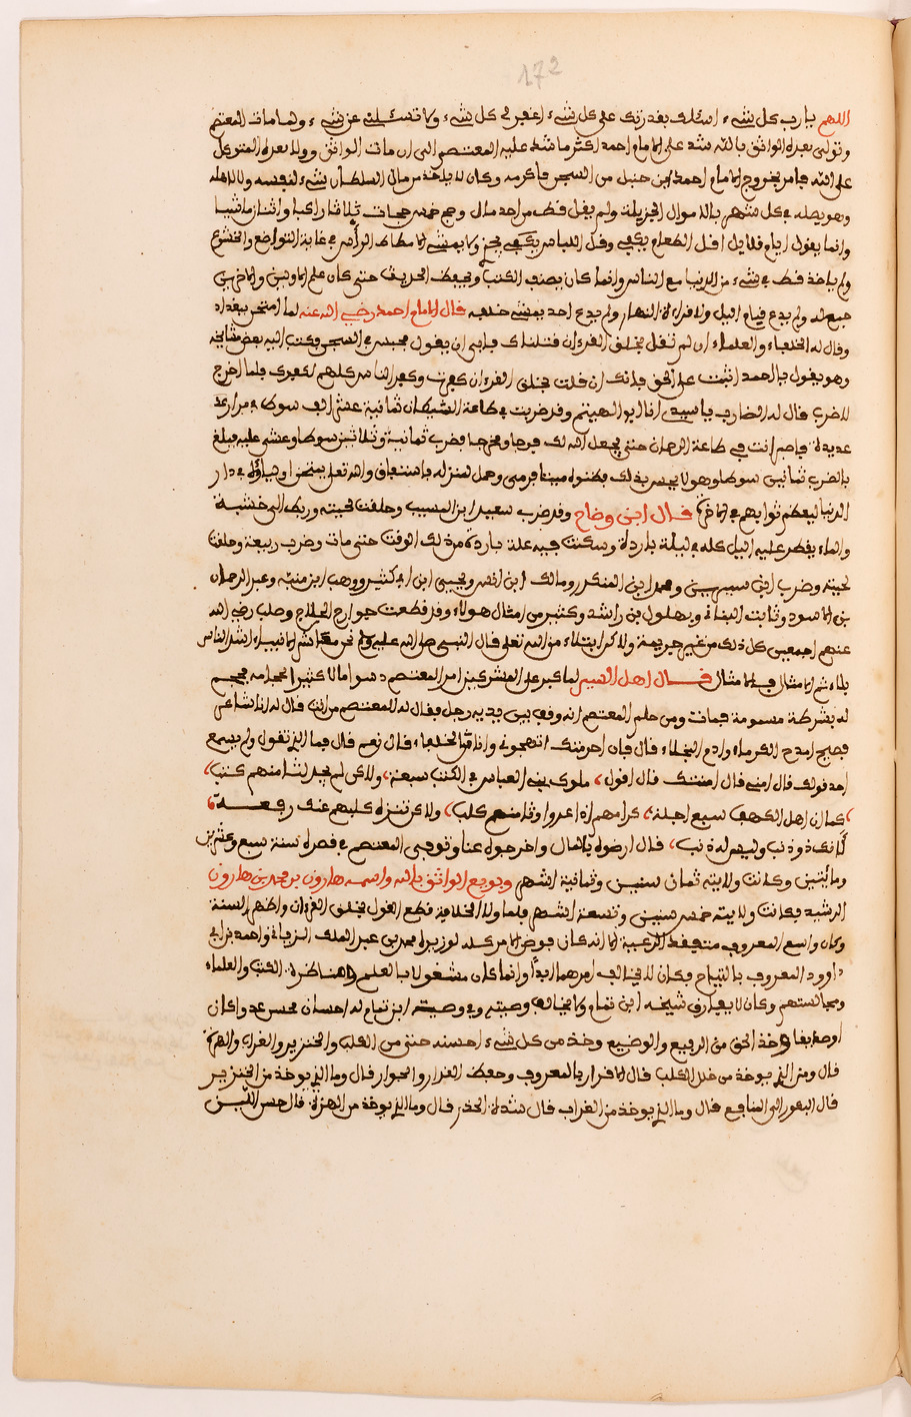 172
اللهم يا رب كل شيء اسئلك بقدرتك على كل شيء اغفر لي كل شيء ولا تسئلني عن شيء ولما مات المعتصم
وتولى بعده الواثق بالله شد على الامام احمد اكثر ما شد عليه المعتصم الى ان مات الواثق وولا بعده المتوكل
على الله فامر بخروج الامام احمد ابن حنبل من السجن فاكرمه وكان لا ياخذ من مال السلطان شيء لنفسه ولا لاهله
وهو يصله في كل شهر بالاموال الجزيلة ولم يقبل قط من احد مال وحج خمس حجات ثلاثا راكبا واثنان ماشيا
وانما يقول ايام قلايل اقل الطعام يكفي وقل اللباس يكفي ولا يمشي الا مطاطا الرأس في غاية التواضع والخشوع
ولم ياخذ قط في شيء من الدنيا مع الناس وانما كان يصنف الكتب ويحفظ الحديث حتى كان علم الاولين والاخرين
جمع له ولم يدع قيام اليل ولا قراءة النهار ولم يدع احد يمشي خلفه قال الامام احمد رضي الله عنه لما امتحن ببغداد
وقال له الخلفاء والعلماء ان لم تقل بخلق القرءان قتلناك فابى ان يقول فحبسه في السجن وكتب اليه بعض مشايخه
وهو يقول يا احمد اثبت على الحق فانك ان قلت بخلق القرءان كفرت وكفر الناس كلهم لكفرك فلما اخرج
للضرب قال له الضارب يا سيدي انا ابو الهيتم وقد ضربت في طاعة الشيطان ثمانية عشر الف سوط في مرار
عديدة فاصبر انت في طاعة الرحمان حتى يجعل الله لك فرجا ومخرجا فضرب ثمانية وثلاثين سوطا وغشي عليه فبلغ
بالضرب ثمانين سوطا وهو لا يحس بذلك فظنوه ميتا فرمى وحمل لمنزله فاستفاق والله تعلى يمتحن اولياؤه في دار
الدنيا ليعظم ثوابهم في الاخرة قال ابن وضاح وقد ضرب سعيد ابن المسيب وحلقت لحيته وربط الى خشبة
والماء يقطر عليه اليل كله في ليلة باردة وسكنت فيه علة باردة من ذلك الوقت حتى مات وضرب ربيعة وحلقت
لحيته وضرب ابن سيرين ومحمد ابن المنكدر ومالك ابن انس ويحيى ابن ابي كثير ووهب ابن منبه وعبد الرحمان
بن الاسود وثابت البناني وبهلول بن راشد وكثير من امثال هولاء وقد قطعت جوارح الحلاج وصلب رضي الله
عنهم اجمعين كل ذلك من غير جريمة ولاكن ابتلاء من الله تعلى قال النبي صلى الله عليه وسلم نحن معاشر الانبياء اشد الناس
بلاء ثم الامثال فالامثال قال اهل السير لما كبر على المشركين امر المعتصم دسوا مالا كثيرا لحجامه فحجم
له بشرطة مسمومة فمات ومن حلم المعتصم انه وقف بين يديه رجل فقال له المعتصم من انت قال له انا شاعر
فصيح امدح الكرماء واردع البخلاء قال فان احرمتك اتهجوني وانا الخلفاء قال نعم قال فما الذي تقول ولم يسمع
احد قولك قال امني قال امنتك قال اقول، ملوك بني العباس في الكتب سبعة، ولاكن لم يجد لثامنهم كتب،
كما ان اهل الكهف سبع اجلة، كرامهم اذا عدوا وثامنهم كلب، ولاكن تنزه كلبهم عنك رفعة
لانك ذو ذنب وليس له ذنب، قال ارضوه بالمال واخرجوه عنا وتوفي المعتصم في قصره سنة سبع وعشرين
ومائتين وكانت ولايته ثمان سنين وثمانية اشهر وبويع الواثق بالله واسمه هارون بن محمد بن هارون
الرشيد فكانت ولايته خمس سنين وتسعة اشهر فلما ولا الخلافة قطع القول بخلق القرءان واظهر السنة
وكان واسع المعروف متيقظ للرعية الا انه كان فوض الامر كله لوزيره محمد بن عبد الملك الزيات واحمد بن ابي
داوود المعروف فكان لا يخالف امرهما ابدا وانما كان مشغولا بالعلم والمناظرة الكتب والعلماء
ومجالستهم وكان لا يفارق شيخه ابن تمام ولا يخالف وصيته وفي وصيته ابن تمام له احسان محسن عدوا كان
او صديقا وخذ الحق من الرفيع والوضيع وخذ من كل شيء احسنه حتى من الكلب والخنزير والغراب والهرة
قال وما الذي يوخذ من خلال الكلب قال الاقرار بالمعروف وحفظ الدار والجوار قال وما الذي يوخذ من الخنزير
قال البكور الى المنافع قال وما الذي يوخذ من الغراب قال شدة الحذر قال وما الذي يوخذ من الهرة قال حسن اللين